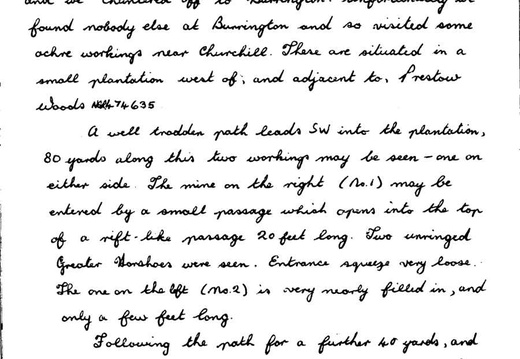 and we chuntered off to Burrington. Unfortunately we
found nobody else at Burrington and so visited some
ochre workings near Churchill. These are situated in a
small plantation west of, and adjacent to, Prestow
Woods 474635
A well trodden path leads SW into the plantation,
80 yards along this two workings may be seen - one on
either side. The mine on the right (No.1) may be
entered by a small passage which opens into the top
of a rift-like passage 20 feet long. Two unringed
Greater Horshoes were seen. Entrance squeeze very loose.
The one on the left (No.2) is very nearly filled in, and
only a few feet long.
Following the path for a further 40 yards, and